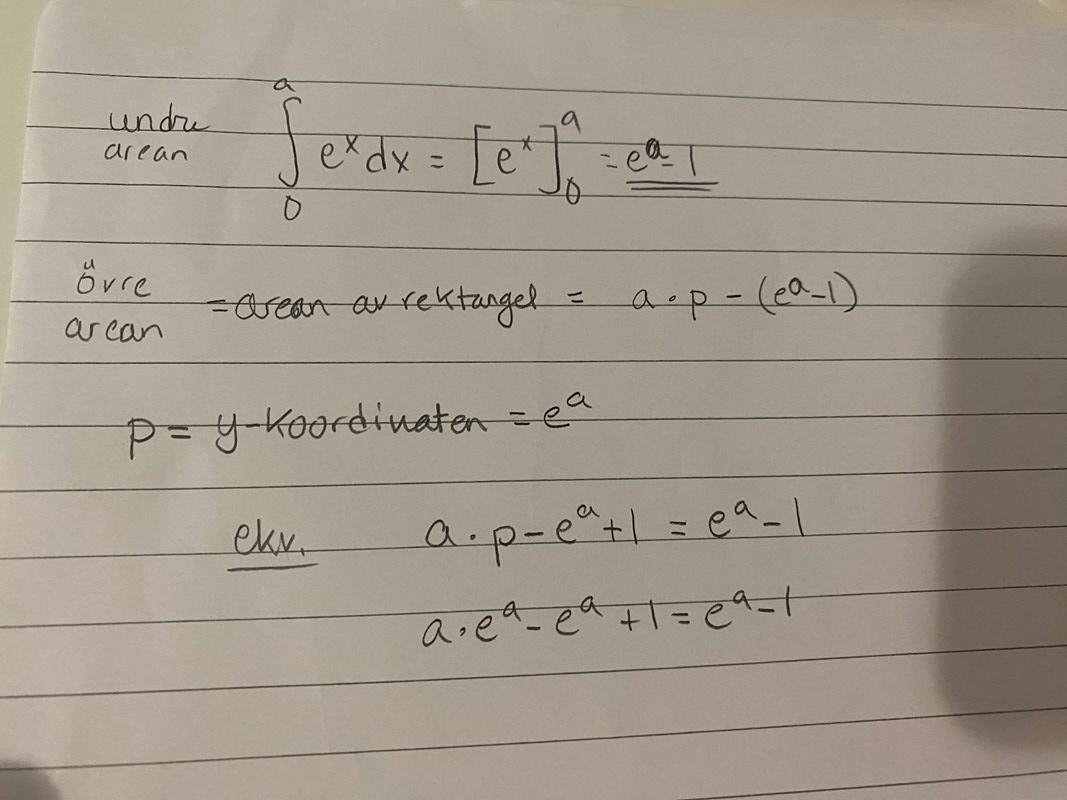 undre arean ∫₀ᵃ eˣ dx = [eˣ]₀ᵃ = eᵃ-1
övre arean = arean av rektangel = a · p - (eᵃ-1)
p = y-koordinaten = eᵃ
ekv. a · p - eᵃ + 1 = eᵃ - 1
a · eᵃ - eᵃ + 1 = eᵃ - 1